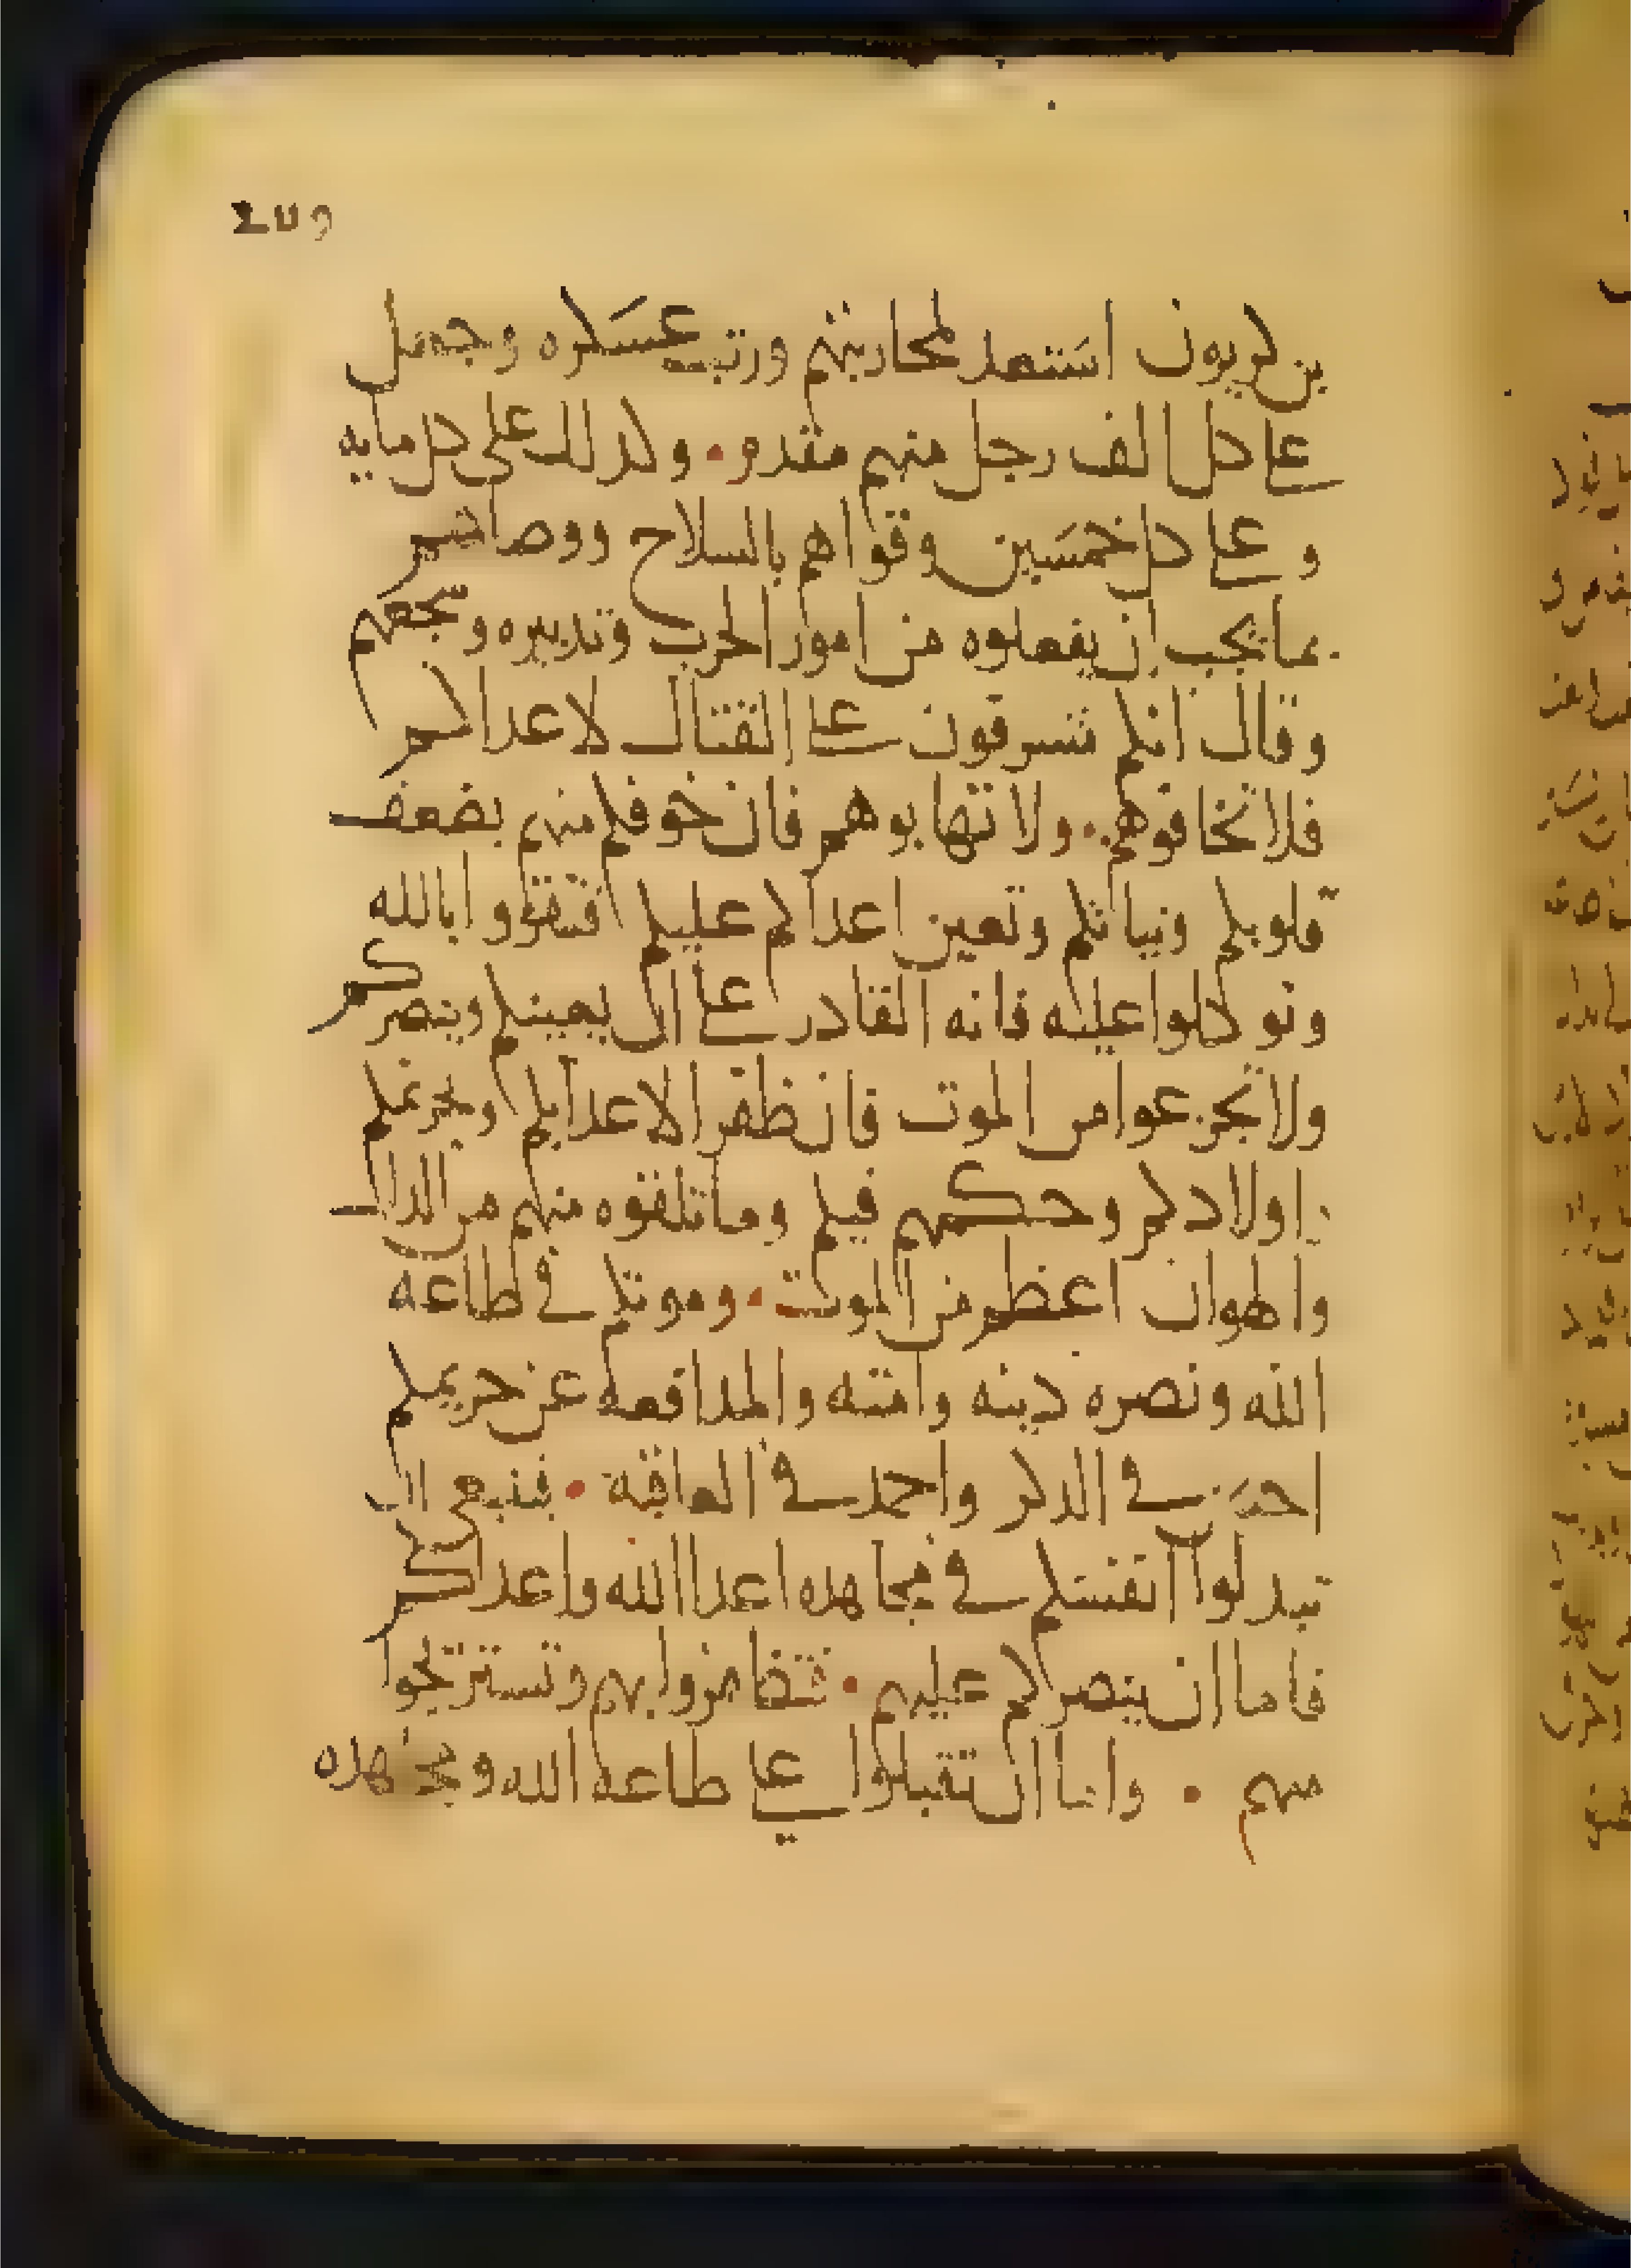 بن كريون استعد لمحاربتهم ورتب عسكره وجعل
على كل الف رجل منهم مقدم ٠ وكدلك على كل مايه
وعلى كل خمسين وقواهم بالسلاح ووصاهم
بما يجب ان يفعلوه من امور الحرب وتدبيره وشجعهم
وقال انكم تشرفون على القتال لاعداكم
فلا تخافوهم ٠ ولا تهابوهم فان خوفكم منهم يضعف
قلوبكم ونياتكم وتعين اعداكم عليكم فتقووا بالله
وتوكلوا عليه فانه القادر على ان يعينكم وينصركم
ولا تجزعوا من الموت فان ظفر الاعدا بكم
اولادكم وحكمهم فيكم وما تلقوه منهم من الدل
والهوان اعظم من الموت ٠ وموتكم في طاعه
الله ونصره دينه وامته والمدافعه عن حريمكم
احسن في الدكر واحمد في العاقبه ٠ فينبغي ان
تبدلوا انفسكم في مجاهده اعدا الله واعداكم
فاما ان ينصركم عليهم ٠ فتظفروا بهم وتستريحوا
منهم ٠ واما ان تقتلوا على طاعه الله ومجاهده